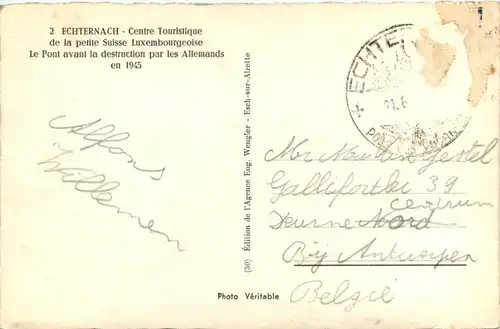 2 ECHTERNACH - Centre Touristique
de la petite Suisse Luxembourgeoise
Le Pont avant la destruction par les Allemands
en 1945
Alfons
Willemen
(50) Édition de l'Agence Eug. Wengler - Esch-sur-Alzette
Photo Véritable
ECHTE
21.6
Mr
Gestel
39
centrum
Deurne Nord
Bij Antwerpen
België